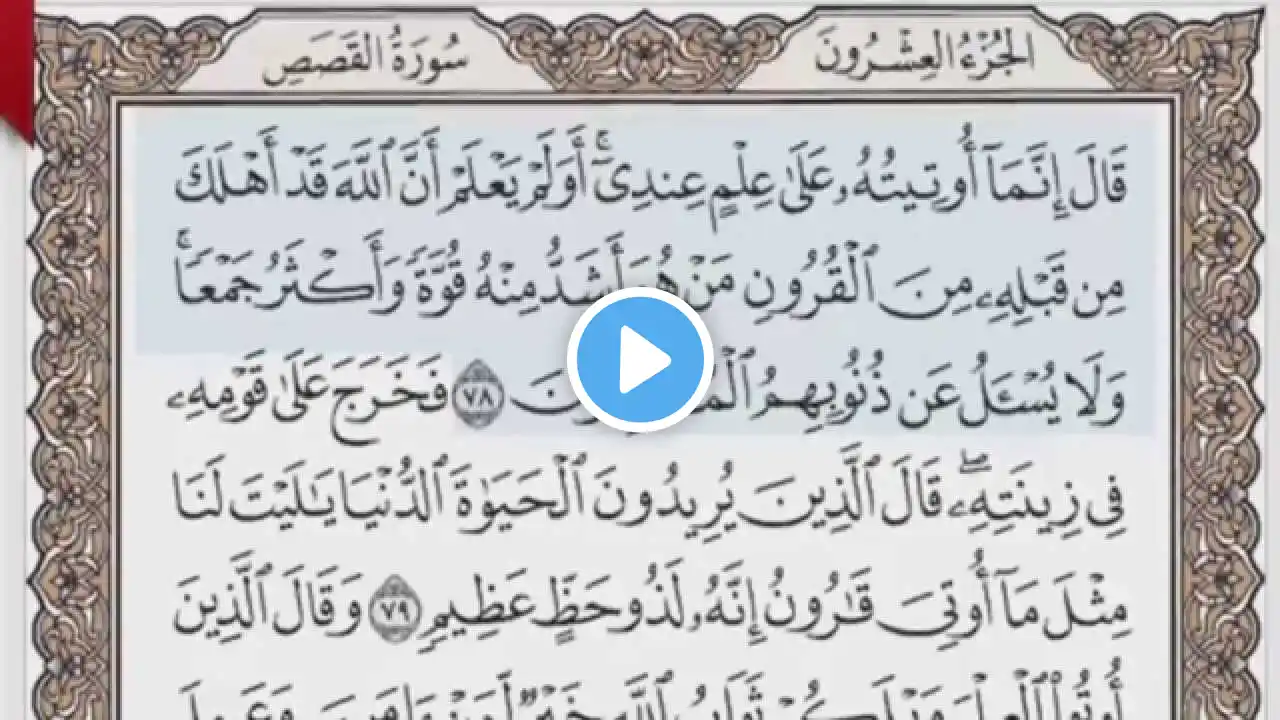 الجُزْءُ العِشْرُونَ
سُورَةُ القَصَصِ
قَالَ إِنَّمَآ أُوتِيتُهُۥ عَلَىٰ عِلْمٍ عِندِىٓۚ أَوَلَمْ يَعْلَمْ أَنَّ ٱللَّهَ قَدْ أَهْلَكَ
مِن قَبْلِهِۦ مِنَ ٱلْقُرُونِ مَنْ هُوَ أَشَدُّ مِنْهُ قُوَّةً وَأَكْثَرُ جَمْعًاۚ
وَلَا يُسْـَٔلُ عَن ذُنُوبِهِمُ ٧٨ فَخَرَجَ عَلَىٰ قَوْمِهِۦ
فِى زِينَتِهِۦۖ قَالَ ٱلَّذِينَ يُرِيدُونَ ٱلْحَيَوٰةَ ٱلدُّنْيَا يَٰلَيْتَ لَنَا
مِثْلَ مَآ أُوتِىَ قَٰرُونُ إِنَّهُۥ لَذُو حَظٍّ عَظِيمٍ ٧٩ وَقَالَ ٱلَّذِينَ